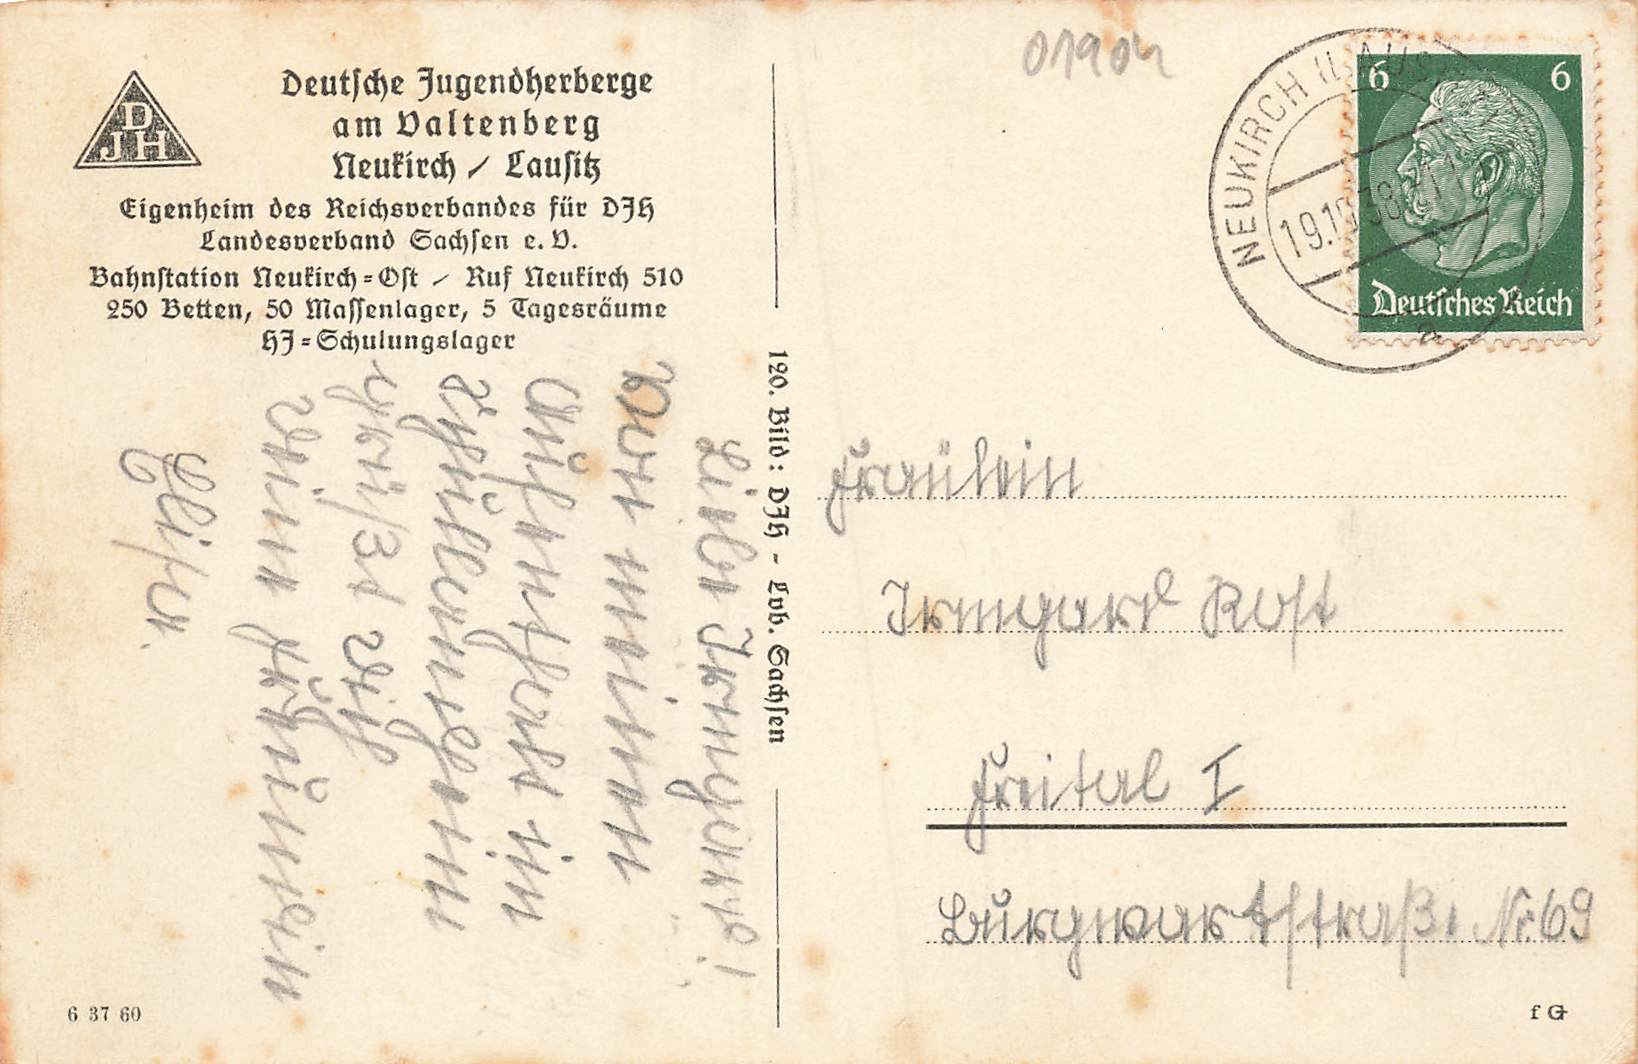 DJH
Deutsche Jugendherberge
am Valtenberg
Neukirch / Lausitz
Eigenheim des Reichsverbandes für DJH
Landesverband Sachsen e. V.
Bahnstation Neukirch=Ost / Ruf Neukirch 510
250 Betten, 50 Massenlager, 5 Tagesräume
HJ=Schulungslager
Liebe Irmgard!
Von meinem
Aufenthalt im
Schullandheim
grüßt dich
deine Freundin
6 37 60
120. Bild: DJH - Lvb. Sachsen
01904
NEUKIRCH (LAUSITZ)
19.10.38
a
6 6
Deutsches Reich
Fräulein
Irmgard Rost
Freital I
Burgwartstraße Nr. 69
f G